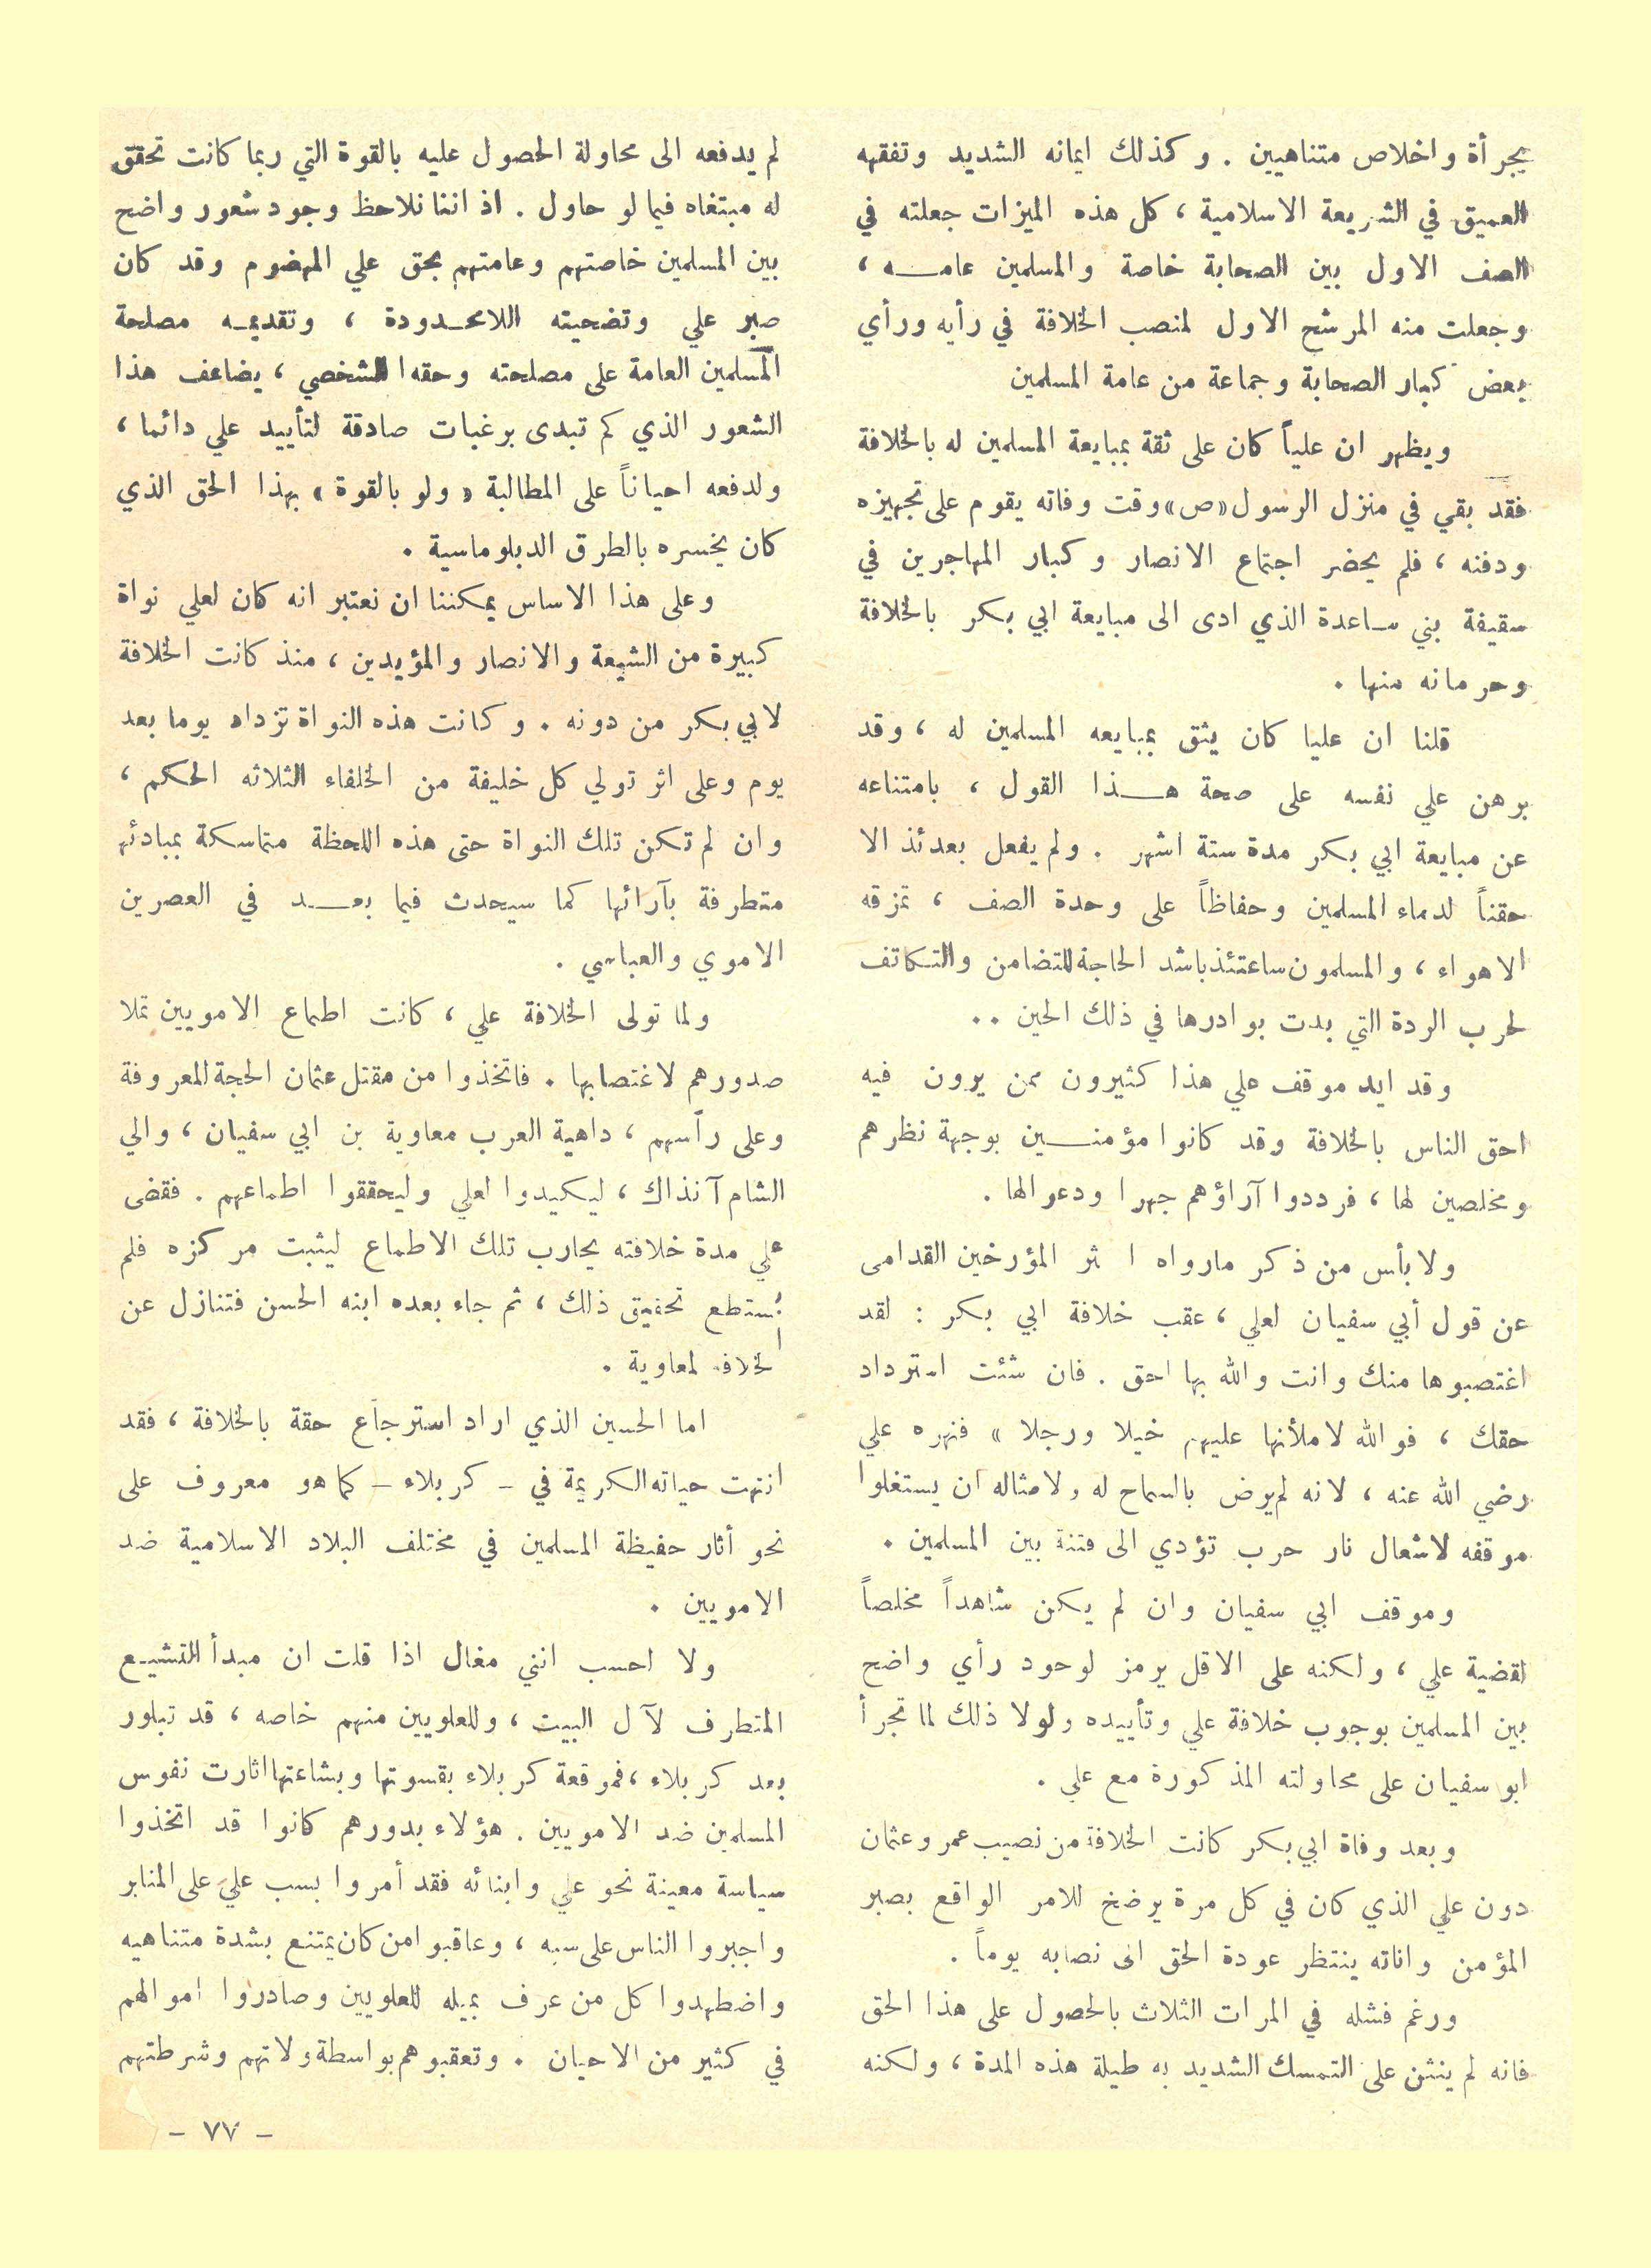 بجرأة واخلاص متناهيين . وكذلك ايمانه الشديد وتفقهه
العميق في الشريعة الاسلامية ، كل هذه الميزات جعلته في
الصف الاول بين الصحابة خاصة والمسلمين عامـــه ،
وجعلت منه المرشح الاول لمنصب الخلافة في رأيه ورأي
بعض كبار الصحابة وجماعة من عامة المسلمين
ويظهر ان علياً كان على ثقة بمبايعة المسلمين له بالخلافة
فقد بقي في منزل الرسول «ص» وقت وفاته يقوم على تجهيزه
ودفنه ، فلم يحضر اجتماع الانصار وكبار المهاجرين في
سقيفة بني ساعدة الذي ادى الى مبايعة ابي بكر بالخلافة
وحرمانه منها .
قلنا ان عليا كان يثق بمبايعه المسلمين له ، وقد
برهن علي نفسه على صحة هــذا القول ، بامتناعه
عن مبايعة ابي بكر مدة ستة اشهر . ولم يفعل بعدئذ الا
حقناً لدماء المسلمين وحفاظاً على وحدة الصف ، تمزقه
الاهواء ، والمسلمون ساعتئذ باشد الحاجة للتضامن والتكاتف
لحرب الردة التي بدت بوادرها في ذلك الحين . .
وقد ايد موقف علي هذا كثيرون ممن يرون فيه
احق الناس بالخلافة وقد كانوا مؤمنــين بوجهة نظرهم
ومخلصين لها ، فرددوا آراؤهم جهرا ودعوا لها .
ولا بأس من ذكر مارواه ا ثر المؤرخين القدامى
عن قول أبي سفيان لعلي ، عقب خلافة ابي بكر : لقد
اغتصبوها منك وانت والله بها احق . فان شئت استرداد
حقك ، فوالله لاملأنها عليهم خيلا ورجلا » فنهره علي
رضي الله عنه ، لانه لم يرض بالسماح له ولامثاله ان يستغلوا
موقفه لاشعال نار حرب تؤدي الى فتنة بين المسلمين .
وموقف ابي سفيان وان لم يكن شاهداً مخلصاً
لقضية علي ، ولكنه على الاقل يرمز لوجود رأي واضح
بين المسلمين بوجوب خلافة علي وتأييده ولولا ذلك لما تجرأ
ابو سفيان على محاولته المذكورة مع علي .
وبعد وفاة ابي بكر كانت الخلافة من نصيب عمر وعثمان
دون علي الذي كان في كل مرة يرضخ للامر الواقع بصبر
المؤمن واناته ينتظر عودة الحق الى نصابه يوماً .
ورغم فشله في المرات الثلاث بالحصول على هذا الحق
فانه لم ينثن على التمسك الشديد به طيلة هذه المدة ، ولكنه
لم يدفعه الى محاولة الحصول عليه بالقوة التي ربما كانت تحقق
له مبتغاه فيما لو حاول . اذ اننا نلاحظ وجود شعور واضح
بين المسلمين خاصتهم وعامتهم بحق علي المهضوم وقد كان
صبر علي وتضحيته اللامحـدودة ، وتقديمـه مصلحة
المسلمين العامة على مصلحته وحقه الشخصي ، يضاعف هذا
الشعور الذي كم تبدى برغبات صادقة لتأييد علي دائما ،
ولدفعه احياناً على المطالبة « ولو بالقوة » بهذا الحق الذي
كان يخسره بالطرق الدبلوماسية .
وعلى هذا الاساس يمكننا ان نعتبر انه كان لعلي نواة
كبيرة من الشيعة والانصار والمؤيدين ، منذ كانت الخلافة
لابي بكر من دونه . وكانت هذه النواة تزداد يوما بعد
يوم وعلى اثر تولي كل خليفة من الخلفاء الثلاثه الحكم ،
وان لم تكن تلك النواة حتى هذه اللحظة متماسكة بمبادئها
متطرفة بآرائها كما سيحدث فيما بعــد في العصرين
الاموي والعباسي .
ولما تولى الخلافة علي ، كانت اطماع الامويين تملا
صدورهم لاغتصابها . فاتخذوا من مقتل عثمان الحجة المعروفة
وعلى رأسهم ، داهية العرب معاوية بن ابي سفيان ، والي
الشام آنذاك ، ليكيدوا لعلي وليحققوا اطماعهم . فقضى
علي مدة خلافته يحارب تلك الاطماع ليثبت مركزه فلم
يستطع تحقيق ذلك ، ثم جاء بعده ابنه الحسن فتنازل عن
الخلافة لمعاوية .
اما الحسين الذي اراد استرجاع حقة بالخلافة ، فقد
انتهت حياته الكريمة في - كربلاء - كما هو معروف على
نحو أثار حفيظة المسلمين في مختلف البلاد الاسلامية ضد
الامويين .
ولا احسب انني مغال اذا قلت ان مبدأ التشيـع
المتطرف لآل البيت ، وللعلويين منهم خاصه ، قد تبلور
بعد كربلاء ، فموقعة كربلاء بقسوتها وبشاعتها اثارت نفوس
المسلمين ضد الامويين . هؤلاء بدورهم كانوا قد اتخذوا
سياسة معينة نحو علي وابنائه فقد أمروا بسب علي على المنابر
واجبروا الناس على سبه ، وعاقبوا من كان يمتنع بشدة متناهيه
واضطهدوا كل من عرف بميله للعلويين وصادروا اموالهم
في كثير من الاحيان . وتعقبوهم بواسطة ولاتهم وشرطتهم
- ٧٧ -